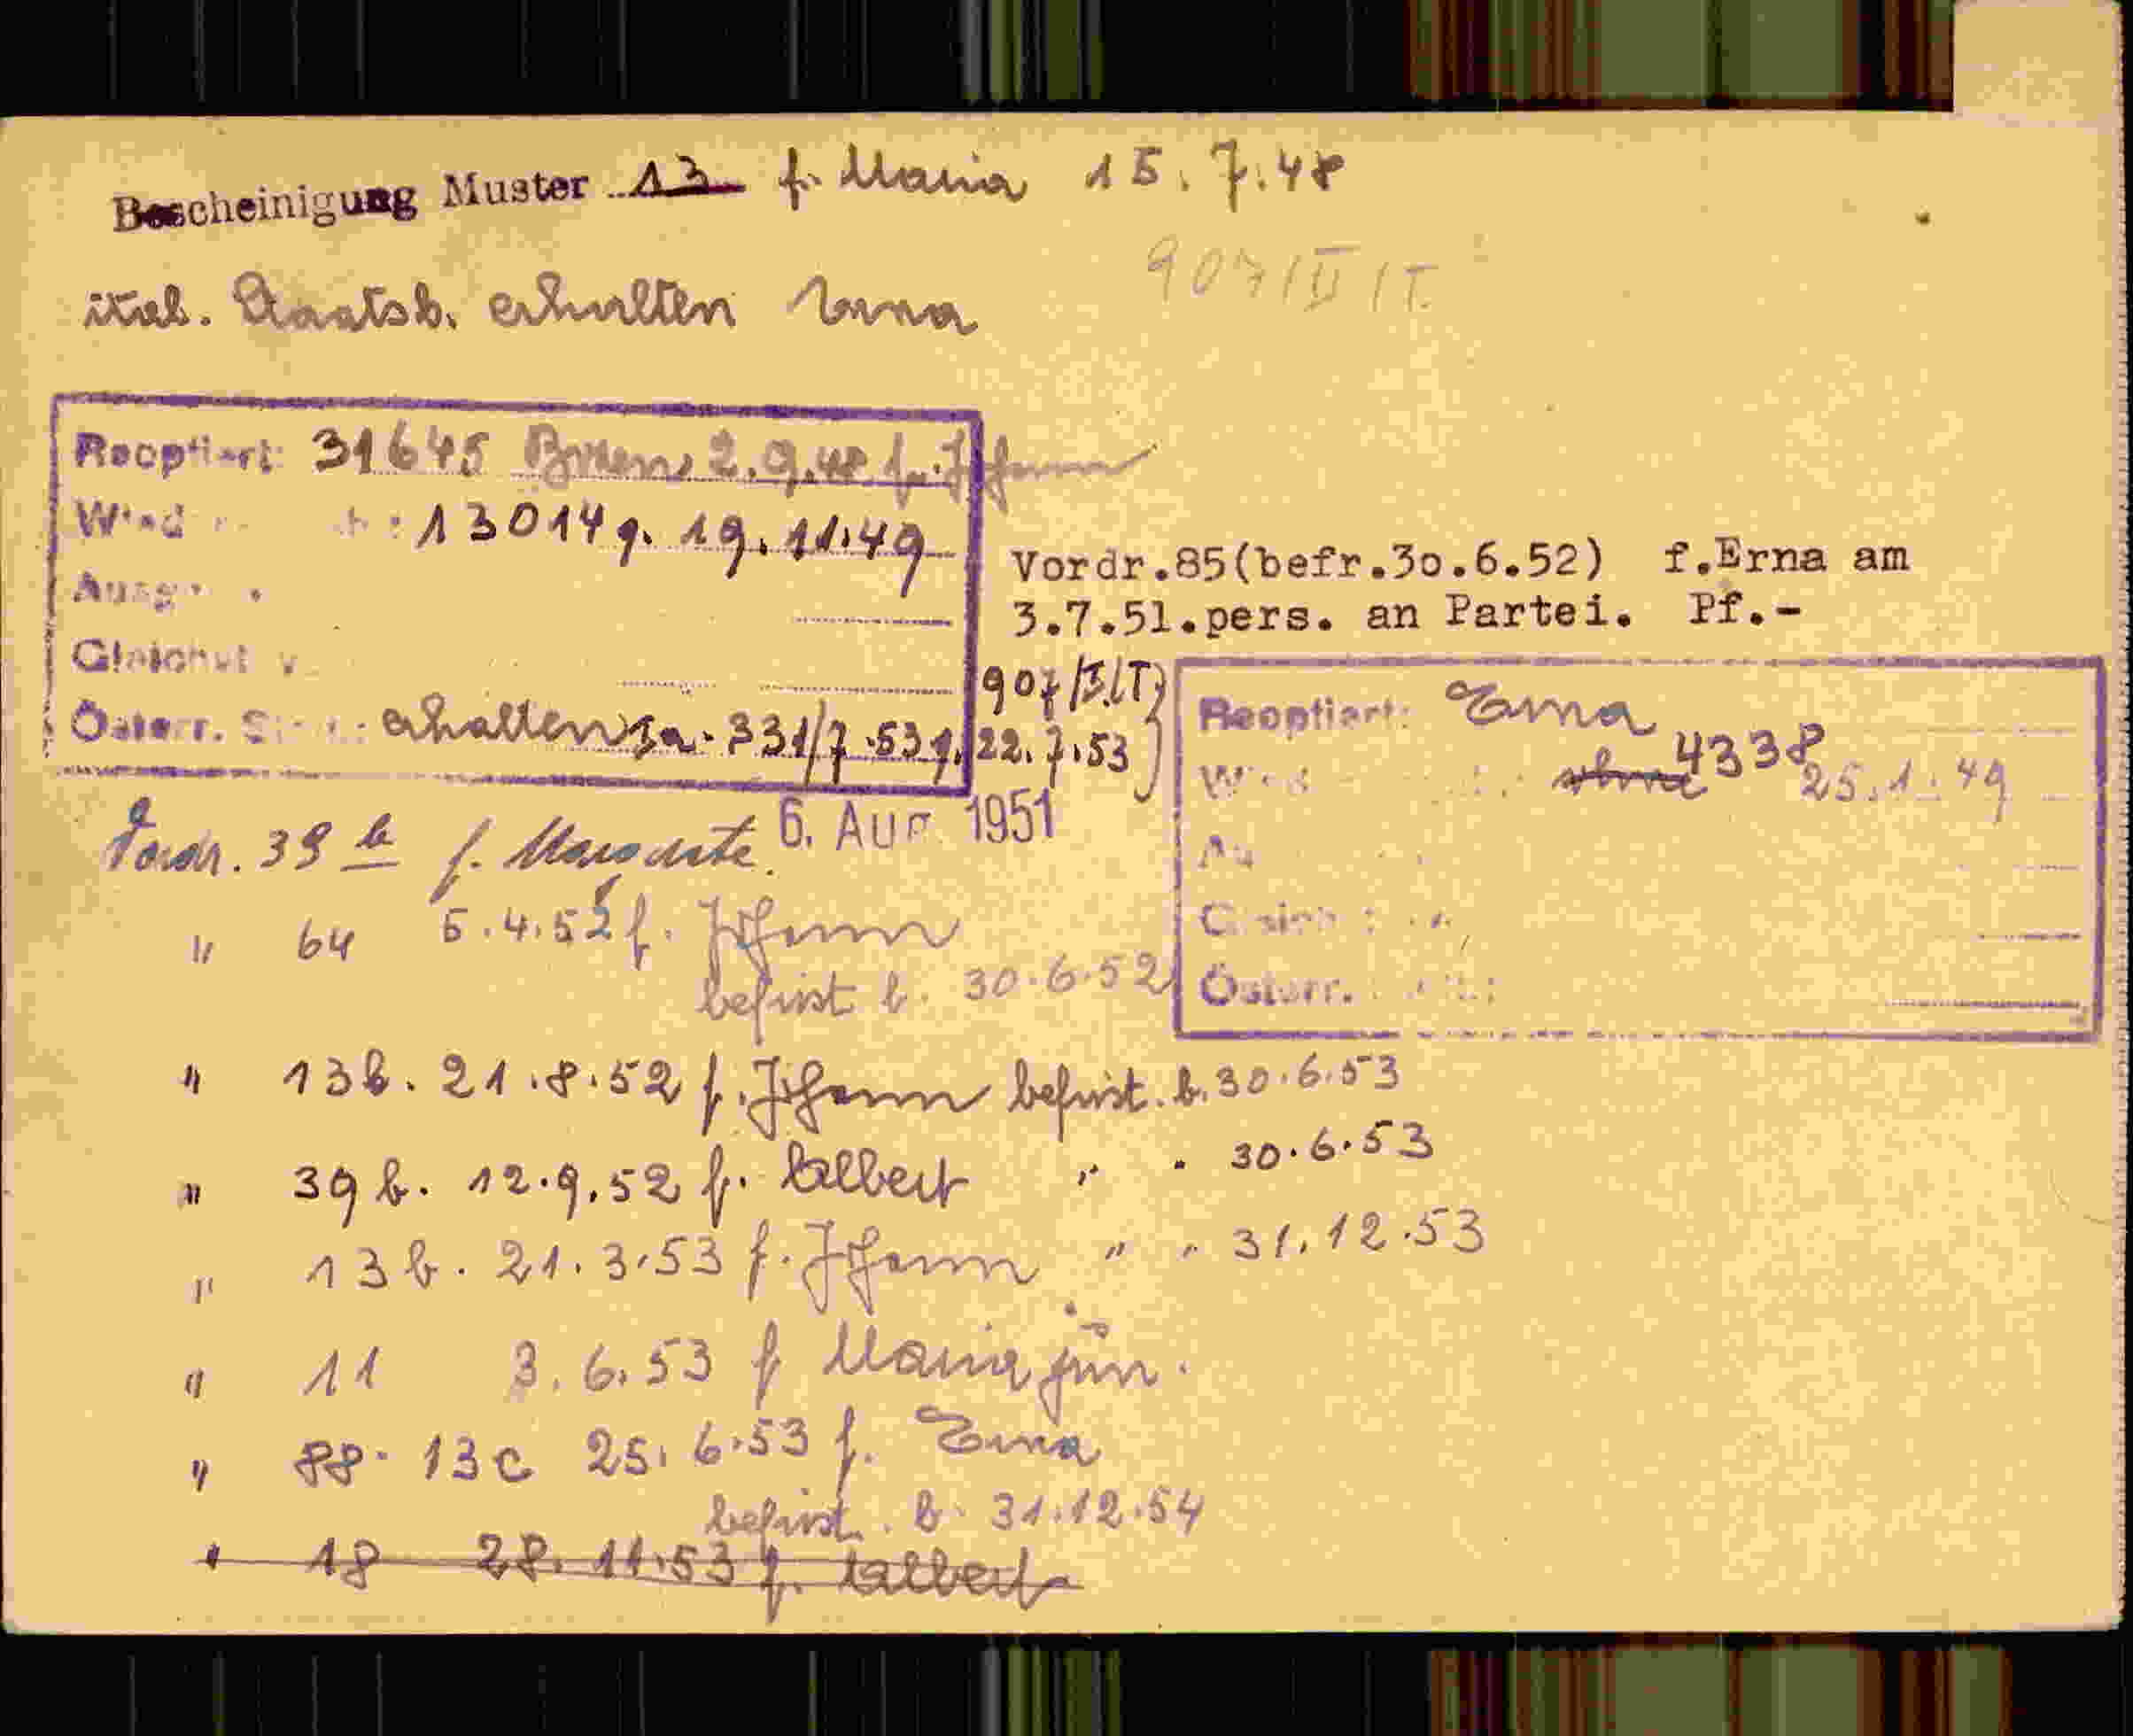 Bescheinigung Muster 13 f. Maria 15.7.48
907/II/T.
ital. Staatsb. erhalten Erna
Reoptiert: 31645 Brixen, 2.9.48 f. Johann
13014 g. 19.11.49
Vordr.85(befr.3o.6.52) f.Erna am
3.7.51.pers. an Partei. Pf.-
Österr. erhalten Ia. 331/7.53 g. 22.7.53
Reoptiert: Erna
4338 25.1.49
Österr.
Vordr. 39 b f. Margarete. 6. Aug. 1951
" 64 5.4.52 f. Johann
befrist b. 30.6.52
" 13b. 21.8.52 f. Johann befrist. b. 30.6.53
" 39 b. 12.9.52 f. Albert " . 30.6.53
" 13 b. 21.3.53 f. Johann " " 31.12.53
" 11 3.6.53 f Maria jun.
" 88. 13c 25.6.53 f. Erna
befrist. b. 31.12.54
" 18 28.11.53 f. Albert